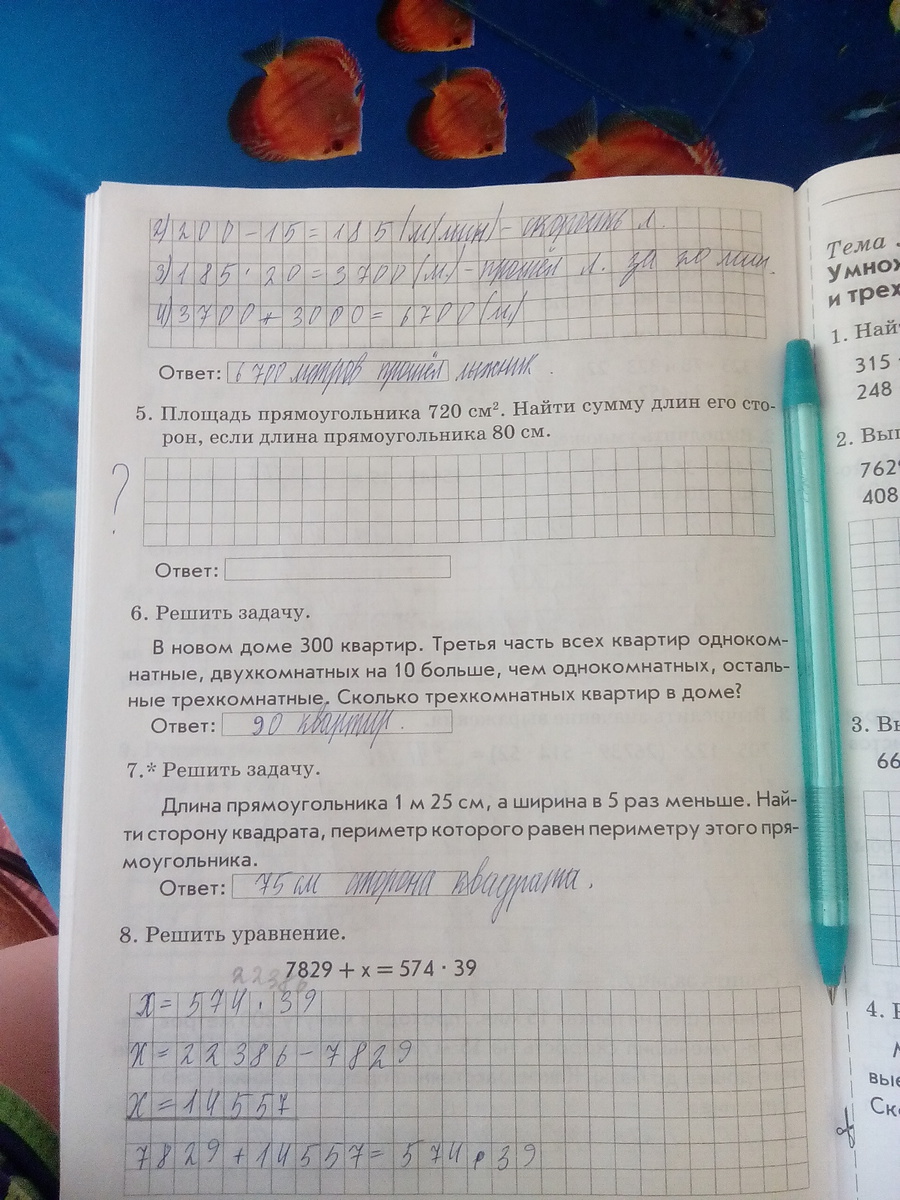 2) 200 - 15 = 185 (м/мин) - скорость л.
3) 185 · 20 = 3700 (м) - прошёл л. за 20 мин.
4) 3700 + 3000 = 6700 (м)
Ответ: 6700 метров прошёл лыжник.
5. Площадь прямоугольника 720 см². Найти сумму длин его сто-
рон, если длина прямоугольника 80 см.
?
Ответ:
6. Решить задачу.
В новом доме 300 квартир. Третья часть всех квартир одноком-
натные, двухкомнатных на 10 больше, чем однокомнатных, осталь-
ные трехкомнатные. Сколько трехкомнатных квартир в доме?
Ответ: 90 квартир.
7.* Решить задачу.
Длина прямоугольника 1 м 25 см, а ширина в 5 раз меньше. Най-
ти сторону квадрата, периметр которого равен периметру этого пря-
моугольника.
Ответ: 75 см сторона квадрата.
8. Решить уравнение.
22386
7829 + x = 574 · 39
x = 574 · 39
x = 22386 - 7829
x = 14557
7829 + 14557 = 574 · 39
Тема
Умнож
и трех
1. Найт
315
248
2. Вып
7629
408
3. Вы
66
4.
вые
Ско